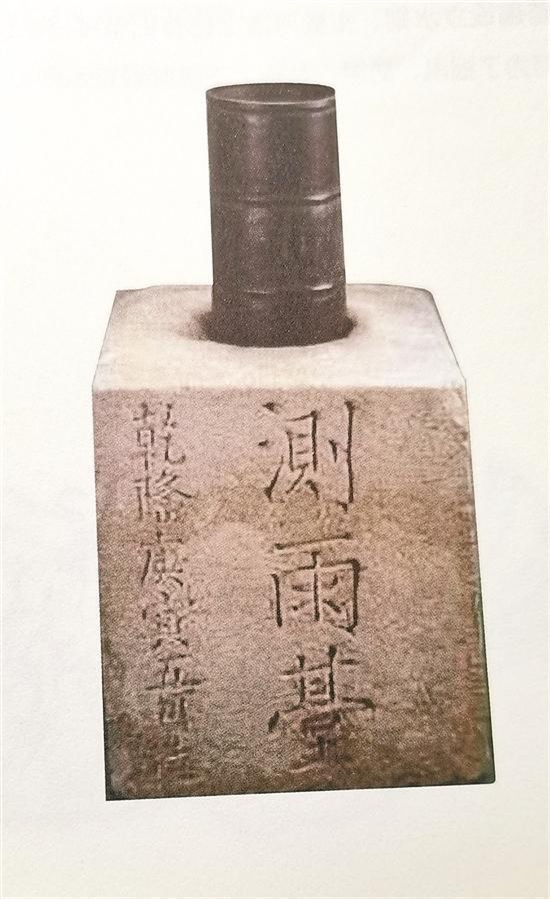 測雨臺
乾隆庚寅五月造